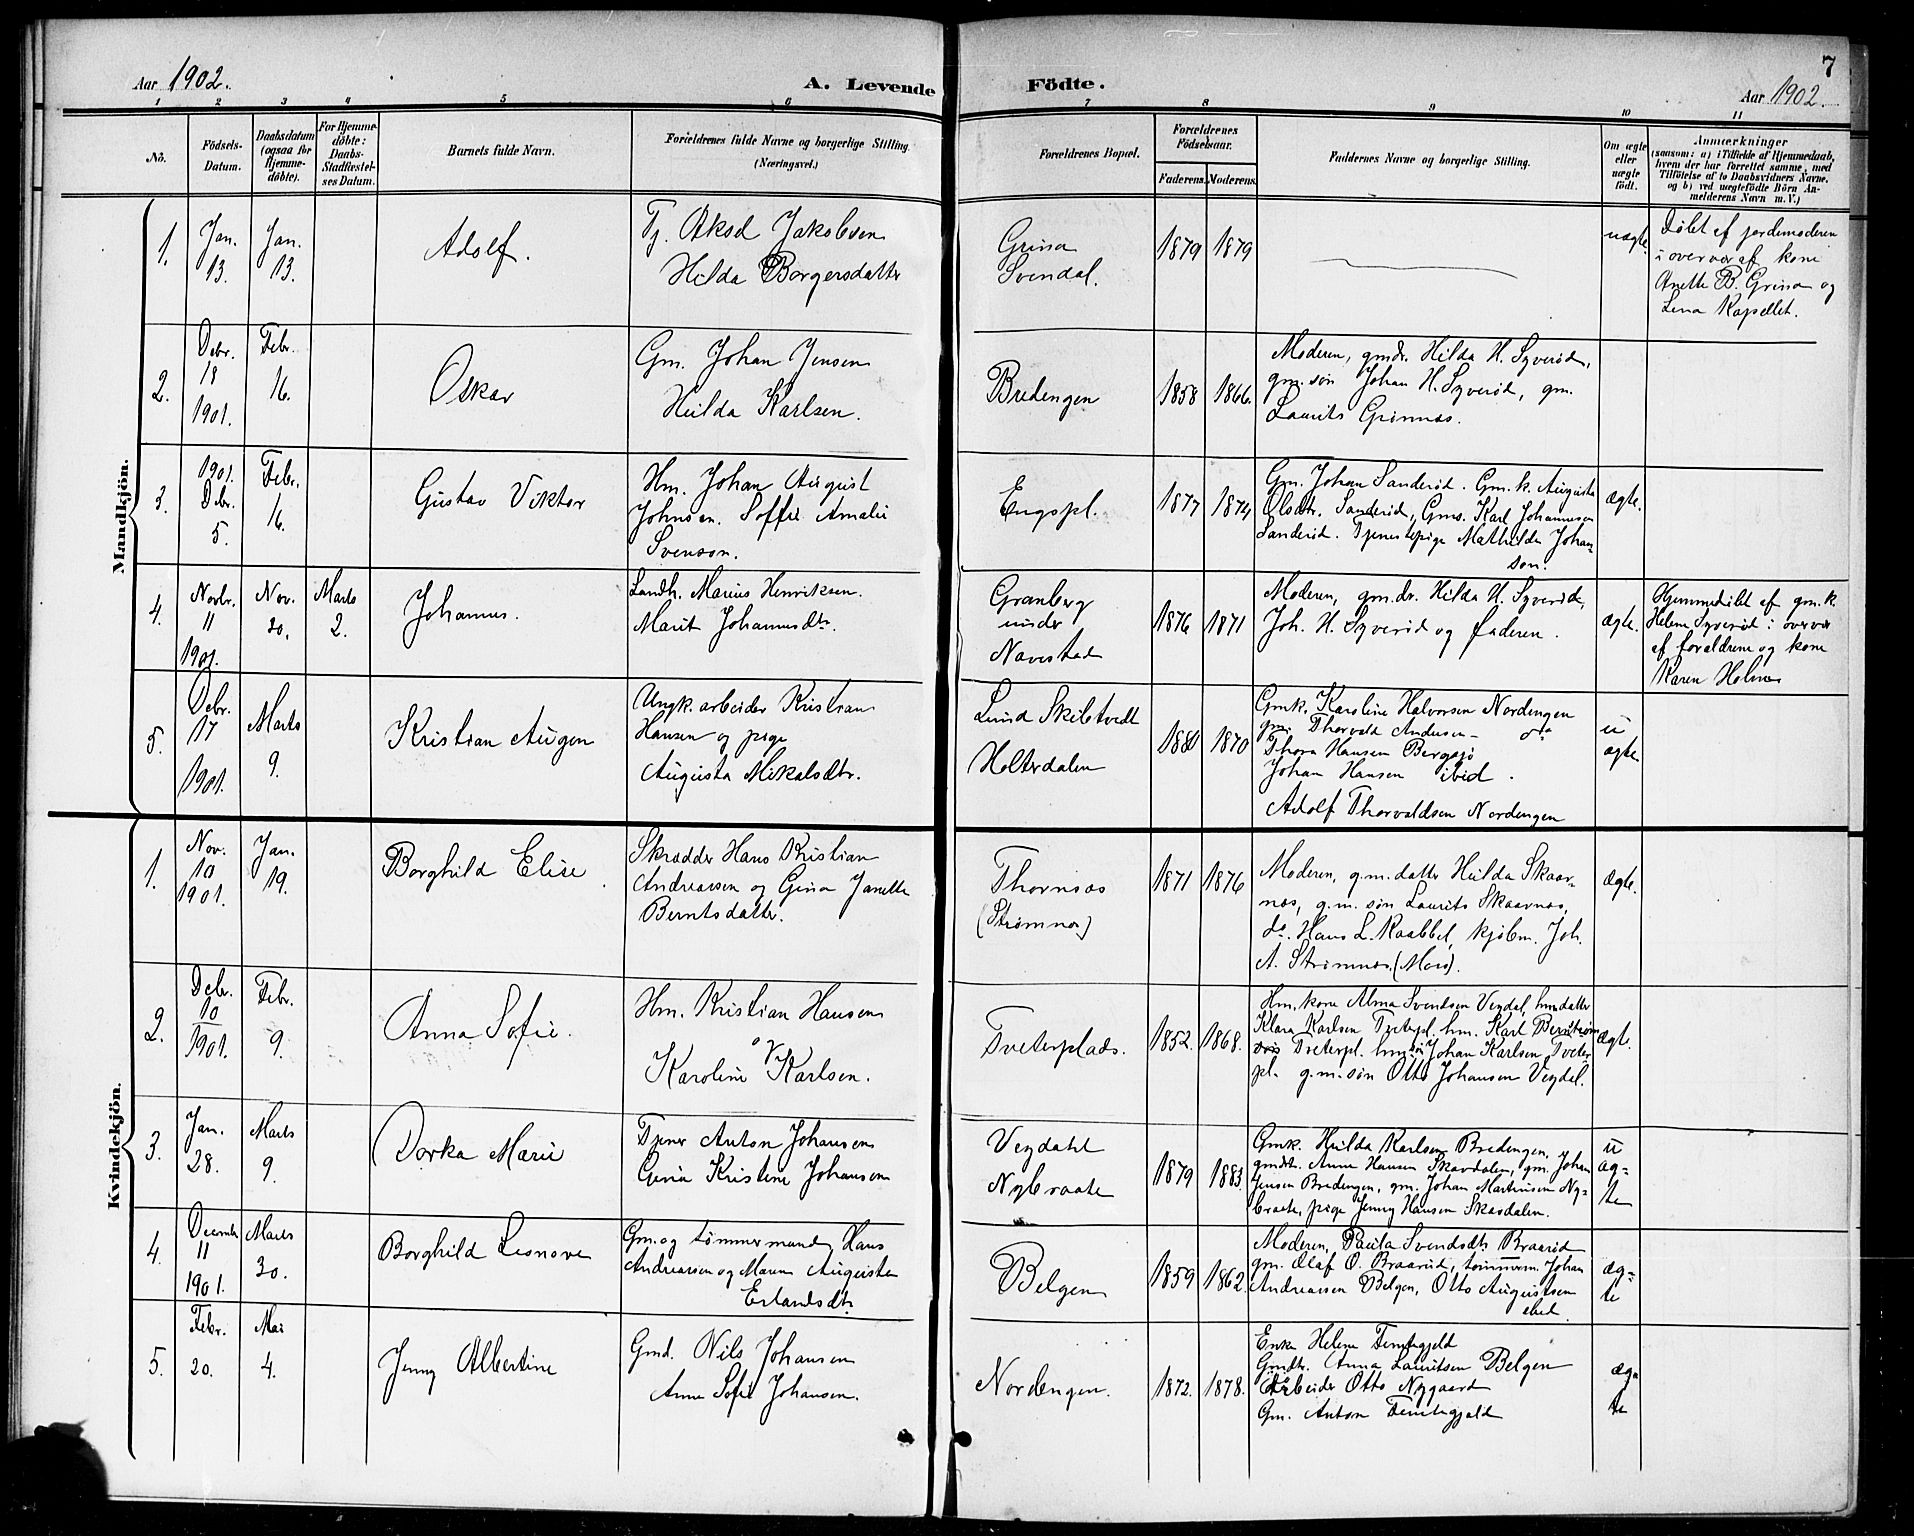 7
Aar 1902.
A. Levende Födte.
Aar 1902.
1 2 3 4 5 6 7 8 9 10 11
No.
Födsels-
Datum.
Daabsdatum
(ogsaa for
Hjemme-
döbte).
For Hjemme-
döbte:
Daabs-
Stadfæstel-
ses Datum.
Barnets fulde Navn.
Forældrenes fulde Navne og borgerlige Stilling
(Næringsvei.)
Forældrenes Bopæl.
Forældrenes
Födselsaar.
Faderens. Moderens.
Faddernes Navne og borgerlige Stilling.
Om ægte
eller
uægte
födt.
Anmærkninger
(saasom: a) i Tilfælde af Hjemmedaab,
hvem der har forrettet samme, med
Tilföielse af to Daabsvidners Navne.
og b) ved uægtefödte Börn An-
melderens Navn m. V.)
Mandkjön.
1.
Jan.
13.
Jan.
13.
Adolf.
Tj. Aksel Jakobsen
Hilda Borgersdatter
Grina
Svendal.
1879 1879
uægte.
Döbt af jordemoderen
i overvær af kone
Anette B. Grina og
Lena Kapellet.
2.
Debr.
18
1901.
Febr.
16.
Oskar
Gm. Johan Jensen
Hulda Karlsen.
Bredengen
1858 1866.
Moderen, gmdr. Hilda H. Syveröd,
gm. sön Johan H. Syveröd, gm.
Laurits Grimnæs.
3.
1901.
Debr.
5.
Febr.
16.
Gustav Viktor
Hm. Johan August
Johnsen. Soffie Amalie
Svenson.
Engspl.
1877 1874
Gm. Johan Sanderöd. Gm. k. Augusta
Olsdtr. Sanderöd, Gms. Karl Johannesen
Sanderöd. Tjenestepige Mathilda Johan-
son.
ægte.
4.
Novbr.
11
1901.
Nov.
20.
Marts
2.
Johannes.
Landh. Marius Henriksen.
Marit Johannesdtr.
Granberg
under
Navestad
1876 1871
Moderen, gm. dr. Hilda H. Syveröd,
Joh. H. Syveröd og faderen.
ægte.
Hjemmedöbt af gm. k.
Helene Syveröd i overvær
af forældrene og kone
Karen Holmes
5.
Debr.
17
1901.
Marts
9.
Kristian Augen
Ungk. arbeider Kristian
Hansen og pige
Augusta Mikalsdtr.
Lund Skibtvedt
Holterdalen
1880 1870
Gmk. Karoline Halvorsen Nordengen
gm. Thorvald Andersen - do
Thora Hansen Bergsjö
Johan Hansen ibid.
Adolf Thorvaldsen Nordengen
u
ægte
Kvindekjön.
1.
Nov.
10
1901.
Jan.
19.
Borghild Elise.
Skrædder Hans Kristian
Andreassen og Gina Janette
Berntsdatter.
Thornæs
(Strömnæs)
1871 1876
Moderen, g. m. datter Hulda Skaar-
næs, g. m. sön Laurits Skaarnæs,
do. Hans L. Kaabbel, kjöbm. Joh.
A. Strömnæs. (Moss).
ægte.
2.
Debr.
10
1901.
Febr.
9.
Anna Sofie.
Hm. Kristian Hansen
og
Karoline Karlsen.
Tveterplads.
1852. 1868.
Hm. kone Alma Svendsen Vegdal, hm. datter
Klara Karlsen Tveterpl. hm. Karl Bernström
Tveterpl. hm. sön Johan Karlsen Tveter-
pl. g. m. sön Otto Johansen Vegdal.
ægte.
3.
Jan.
28.
Marts
9.
Dorka Marie
Tjener Anton Johansen
Gina Kristine Johansen
Vegdahl
Nybraate
1879 1883.
Gmk. Hulda Karlsen Bredengen, y
gmdtr. Anne Hansen Skavdalen, gm. Johan
Jensen Bredengen, gm. Johan Martinsen Ny-
braate, pige Jenny Hansen Skavdalen.
u
æg-
te
4.
Decembr
11
1901.
Marts
30.
Borghild Leonore
Gm. og tömmermand Hans
Andreassen og Maren Augusta
Erlandsdtr
Belgen
1859 1862.
Moderen, Paula Svendsdtr Braaröd
gm. Olaf O. Braaröd, tömmerm. Johan
Andreassen Belgen, Otto Augustsen
ibid.
æg-
te
5.
Febr.
20.
Mai
4.
Jenny Albertine
Gmd. Nils Johansen
Anne Sofie Johansen.
Nordengen.
1872. 1878.
Enke Helene Femtegjeld
Gmdtr. Anna Lauritsen Belgen
Arbeider Otto Nygaard
Gm. Anton Femtegjeld
æg-
te